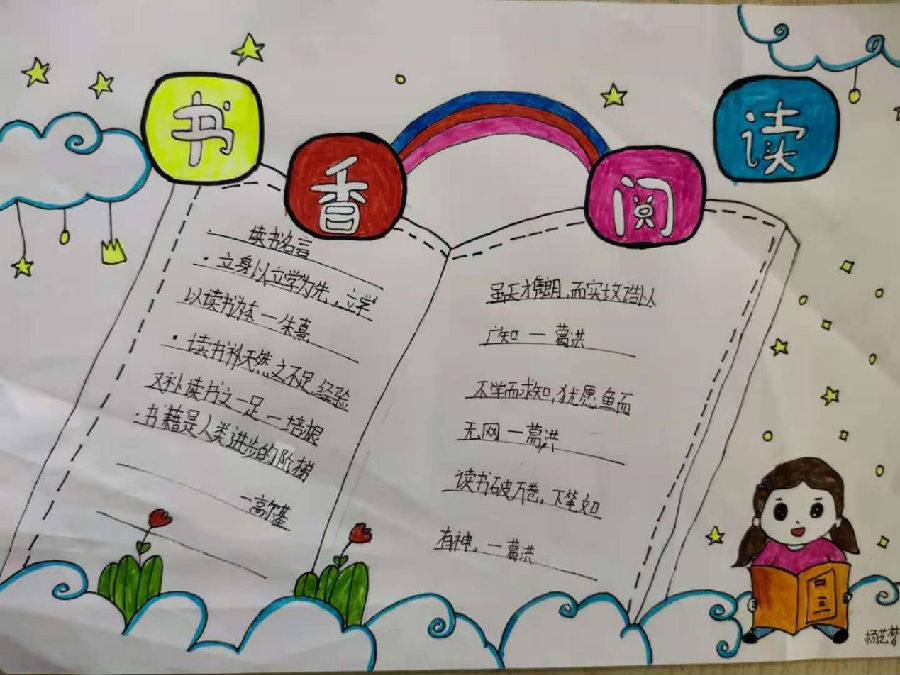 书香阅读
读书名言
·立身以立学为先，立学
以读书为本一朱熹
·读书补天然之不足，经验
又补读书之一足一培根
·书籍是人类进步的阶梯
一高尔基
虽天才隽朗，而实
广知一葛洪
不学而求知，犹愿鱼而
无网一葛洪
读书破万卷，下笔如
有神，一葛洪
杨艺梦